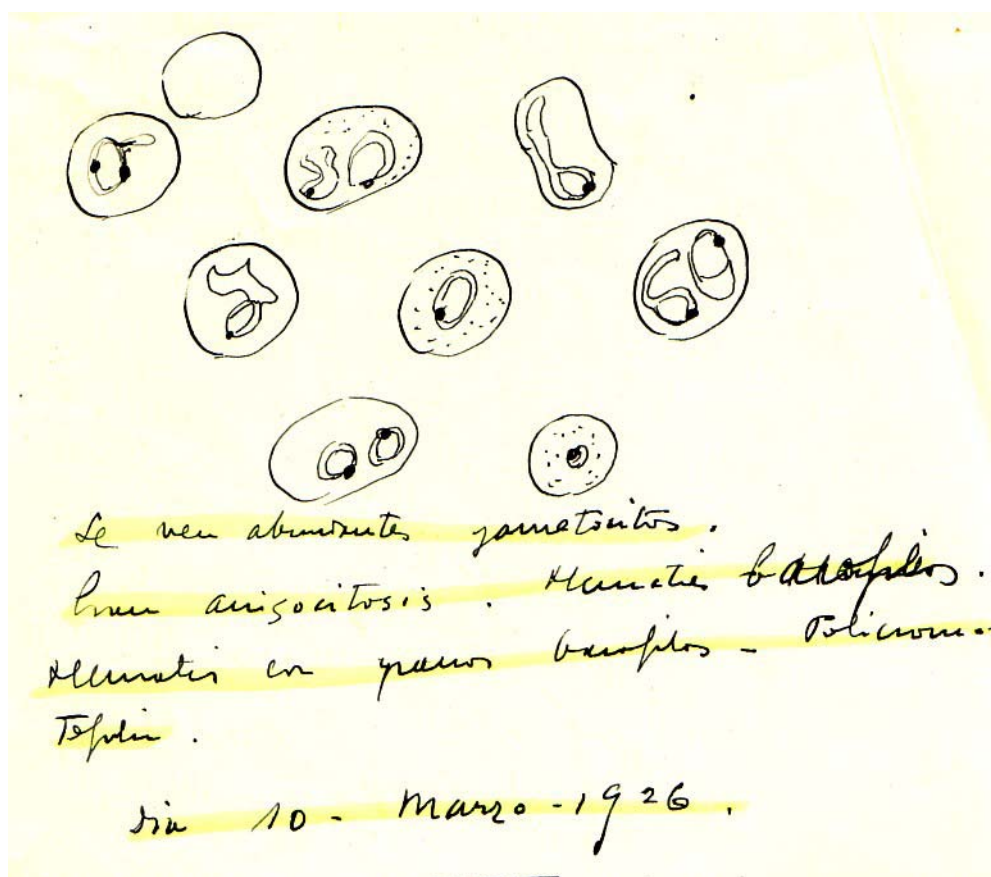 Se ven abundantes gametocitos.
Gran anisocitosis. Hematies basofilos.
Hematies con granos basofilos - Policroma-
tofilia.
Dia 10 - Marzo - 1926.